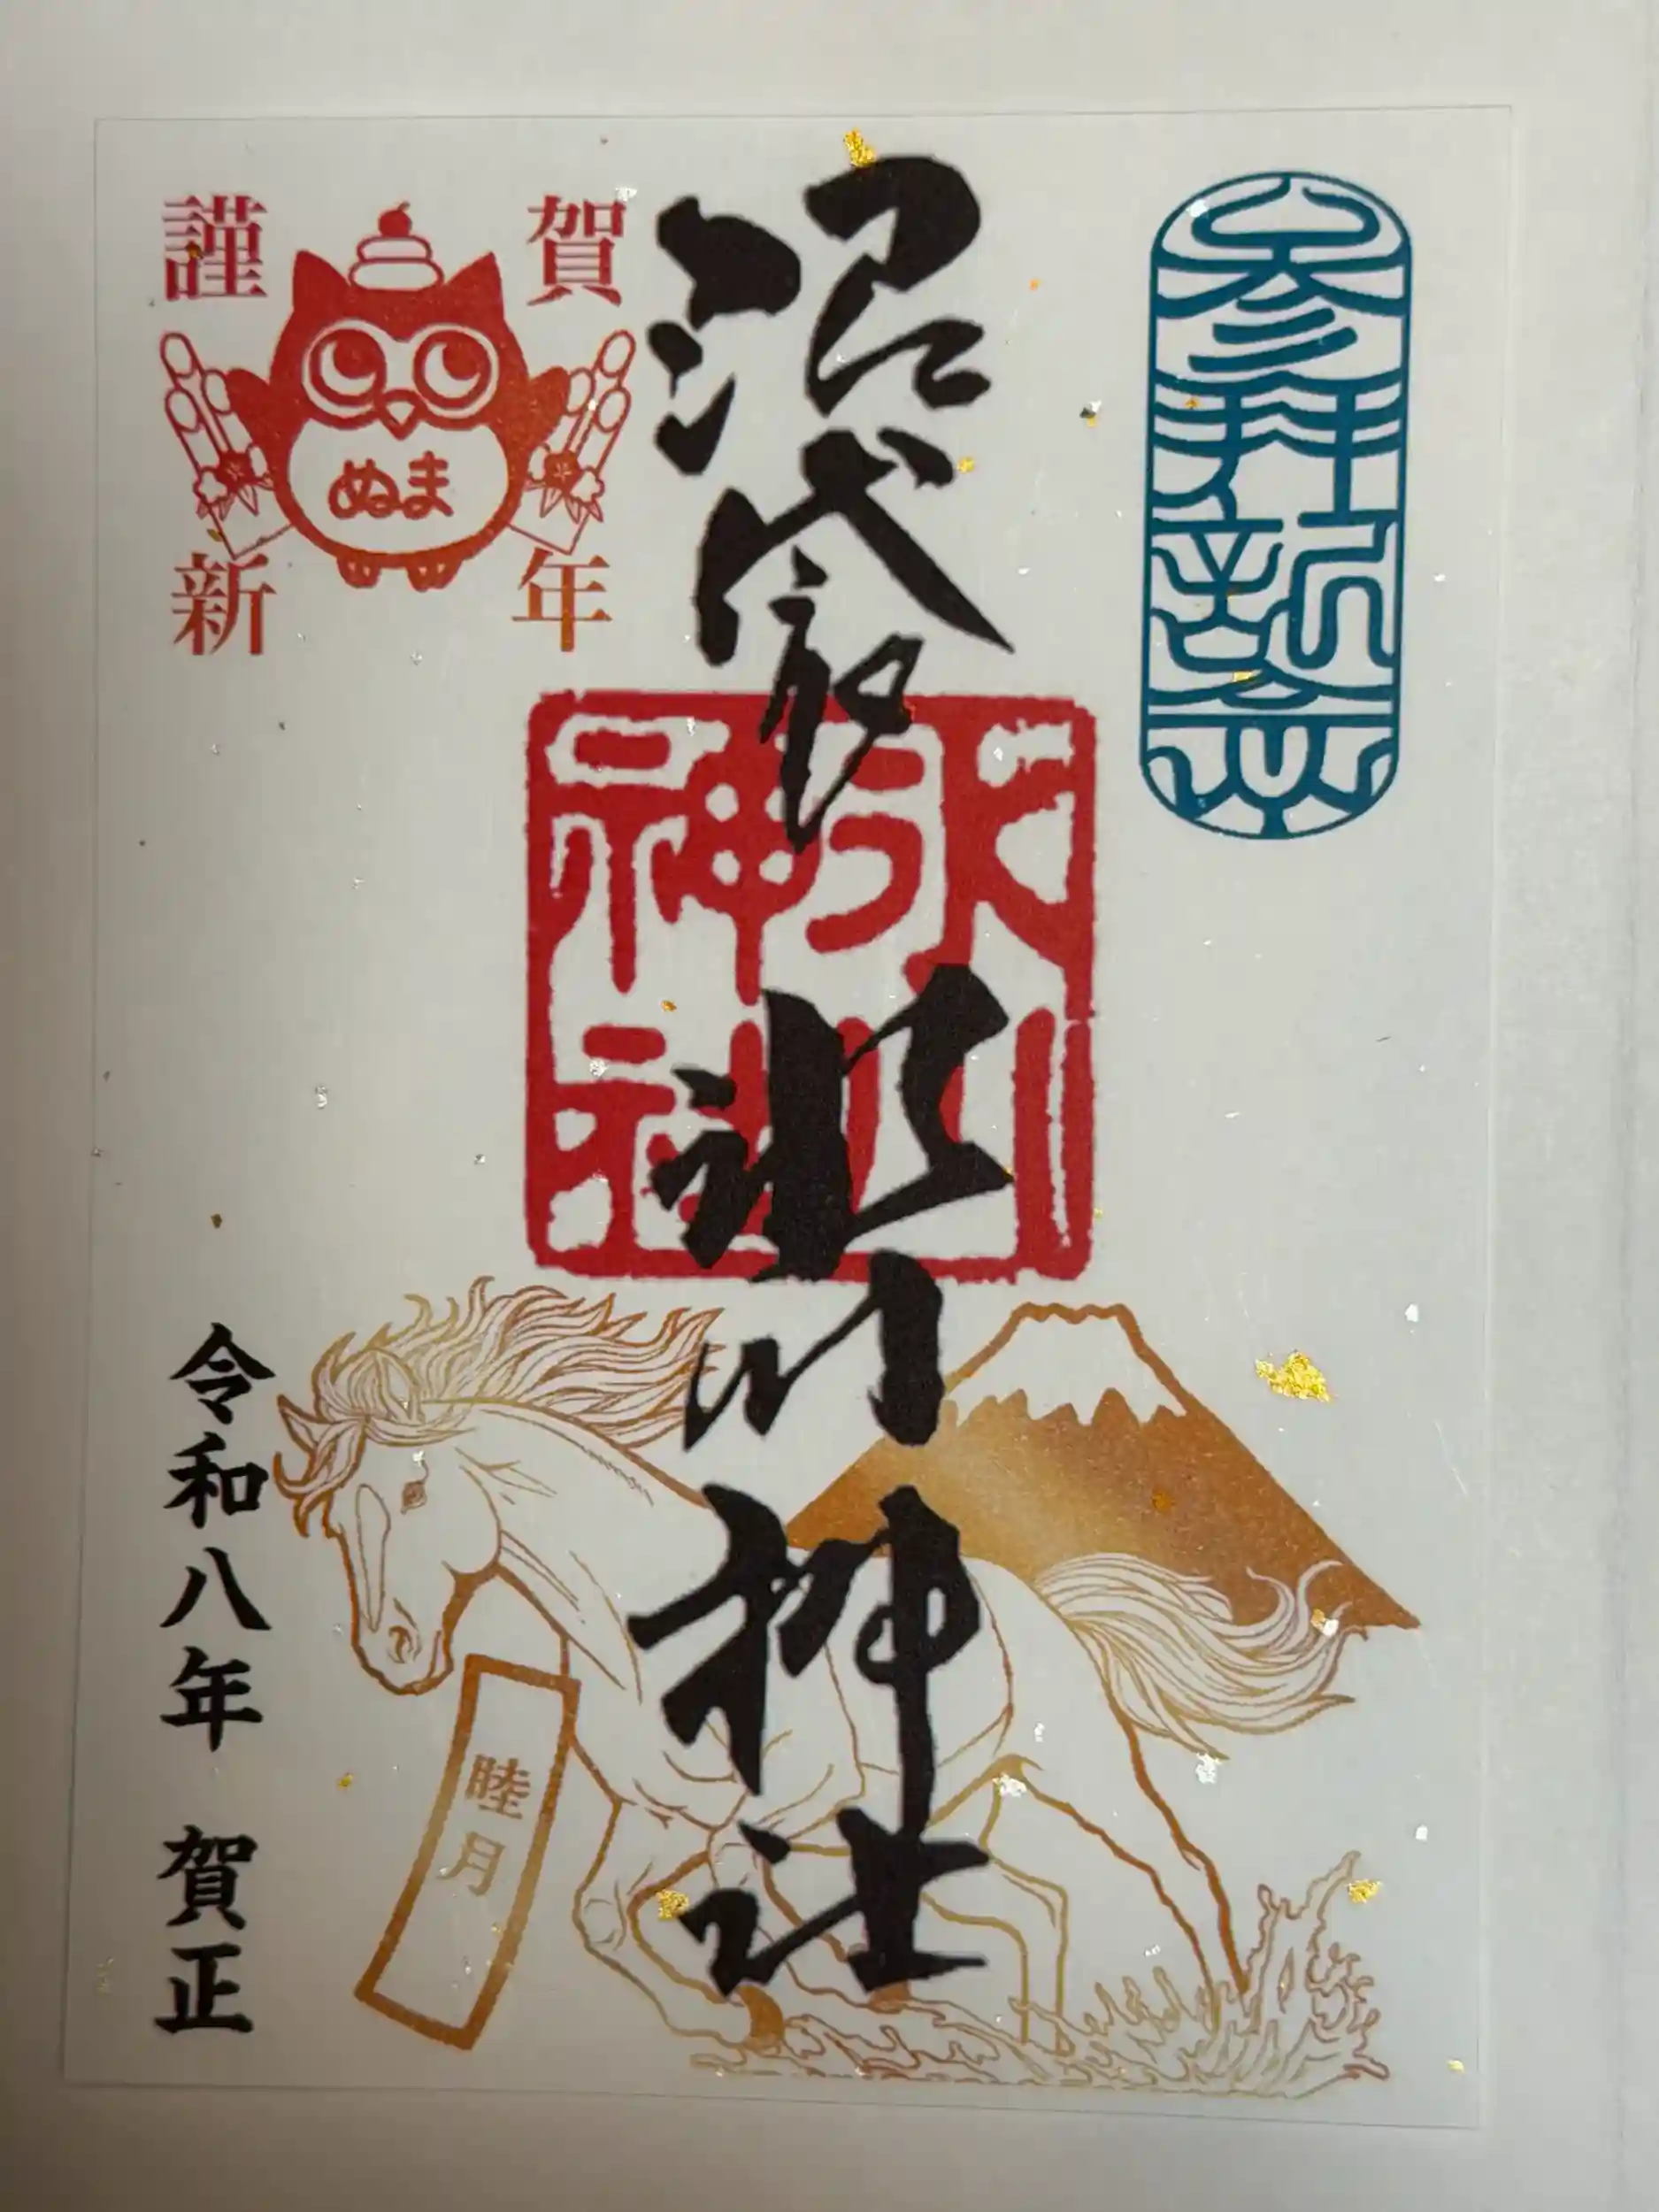 参拝記念
沼袋氷川神社
氷川
神社
謹賀
新年
ぬま
睦月
令和八年 賀正